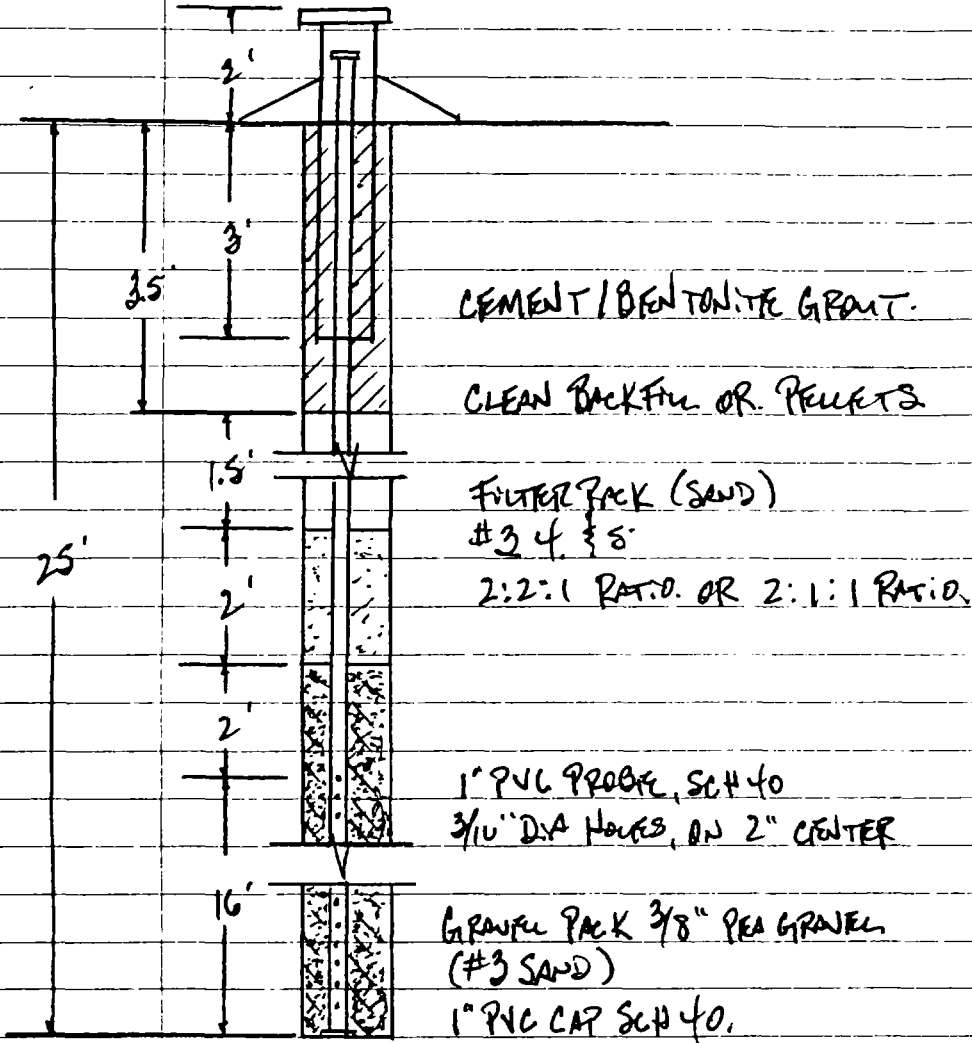 2'
3'
3.5'
CEMENT/BENTONITE GROUT.
CLEAN BACKFILL OR PELLETS
1.5'
FILTER PACK (SAND)
#3 4 & 5
25'
2:2:1 RATIO. OR 2:1:1 RATIO.
2'
2'
1" PVC PROBE, SCH 40
3/16" DIA HOLES, ON 2" CENTER
16'
GRAVEL PACK 3/8" PEA GRAVEL
(#3 SAND)
1" PVC CAP SCH 40.